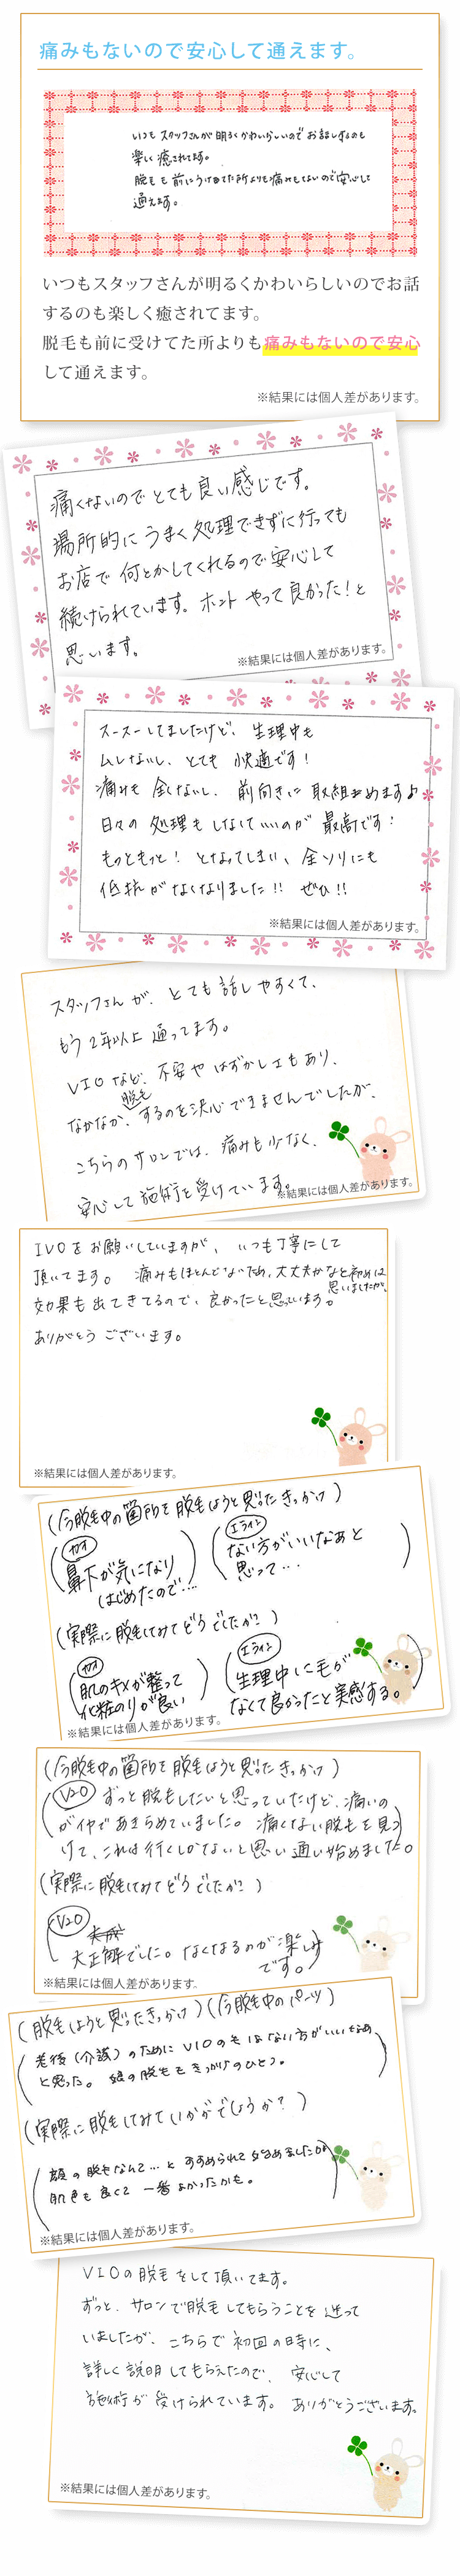 痛みもないので安心して通えます。
いつもスタッフさんが明るくかわいらしいのでお話しするのも
楽しく癒されてます。
脱毛も前にうけてた所よりも痛みもてないので安心して
通えます。
いつもスタッフさんが明るくかわいらしいのでお話
するのも楽しく癒されてます。
脱毛も前に受けてた所よりも痛みもないので安心
して通えます。
※結果には個人差があります。
痛くないのでとても良い感じです。
場所的にうまく処理できずに行っても
お店で何とかしてくれるので安心して
続けられています。ホントやって良かった!と
思います。
※結果には個人差があります。
スースーしてましたけど、生理中も
ムレないし、とても快適です!
痛みも全くないし、前向きに取組めます♪
日々の処理もしなくていいのが最高です!
もっともっと!となってしまい、全ソリにも
低抗がなくなりました!!ぜひ!!
※結果には個人差があります。
スタッフさんが、とても話しやすくて、
もう2年以上通ってます。
VIOなど、不安やはずかしさもあり、
なかなか、脱毛するのを決心できませんでしたが、
こちらのサロンでは、痛みも少なく、
安心して施術を受けています。
※結果には個人差があります。
IVOをお願いしていますが、いつも丁寧にして
頂いてます。痛みもほとんどないため、大丈夫かなと初めは
思いましたが、
効果も出てきてるので、良かったと思っています。
ありがとうございます。
※結果には個人差があります。
(今脱毛中の箇所を脱毛しようと思ったきっかけ)
カオ
鼻下が気になり
はじめたので…
Iライン
ない方がいいなあと
思って…
(実際に脱毛してみてどうでしたか?)
カオ
肌のキメが整って
化粧のりが良い
Iライン
生理中に毛が
なくて良かったと実感する。
※結果には個人差があります。
(今脱毛中の箇所を脱毛しようと思ったきっかけ)
VIO ずっと脱毛したいと思っていたけど、痛いの
がイヤであきらめていました。痛くない脱毛を見つ
けて、これは行くしかないと思い通い始めました。
(実際に脱毛してみてどうでしたか?)
VIO
大正解でした。なくなるのが楽しみ
です。
※結果には個人差があります。
(脱毛しようと思ったきっかけ)(今脱毛中のパーツ)
老後(介護)のためにVIOのもはない方がいいなあ
と思った。娘の脱毛もきっかけのひとつ。
(実際に脱毛してみていかがでしょうか?)
顔の脱毛なんて…とすすめられて始めましたが
肌色も良くて一番よかったかも。
※結果には個人差があります。
VIOの脱毛をして頂いてます。
ずっと、サロンで脱毛してもらうことを迷って
いましたが、こちらで初回の時に、
詳しく説明してもらえたので、安心して
施術が受けられています。ありがとうございます。
※結果には個人差があります。